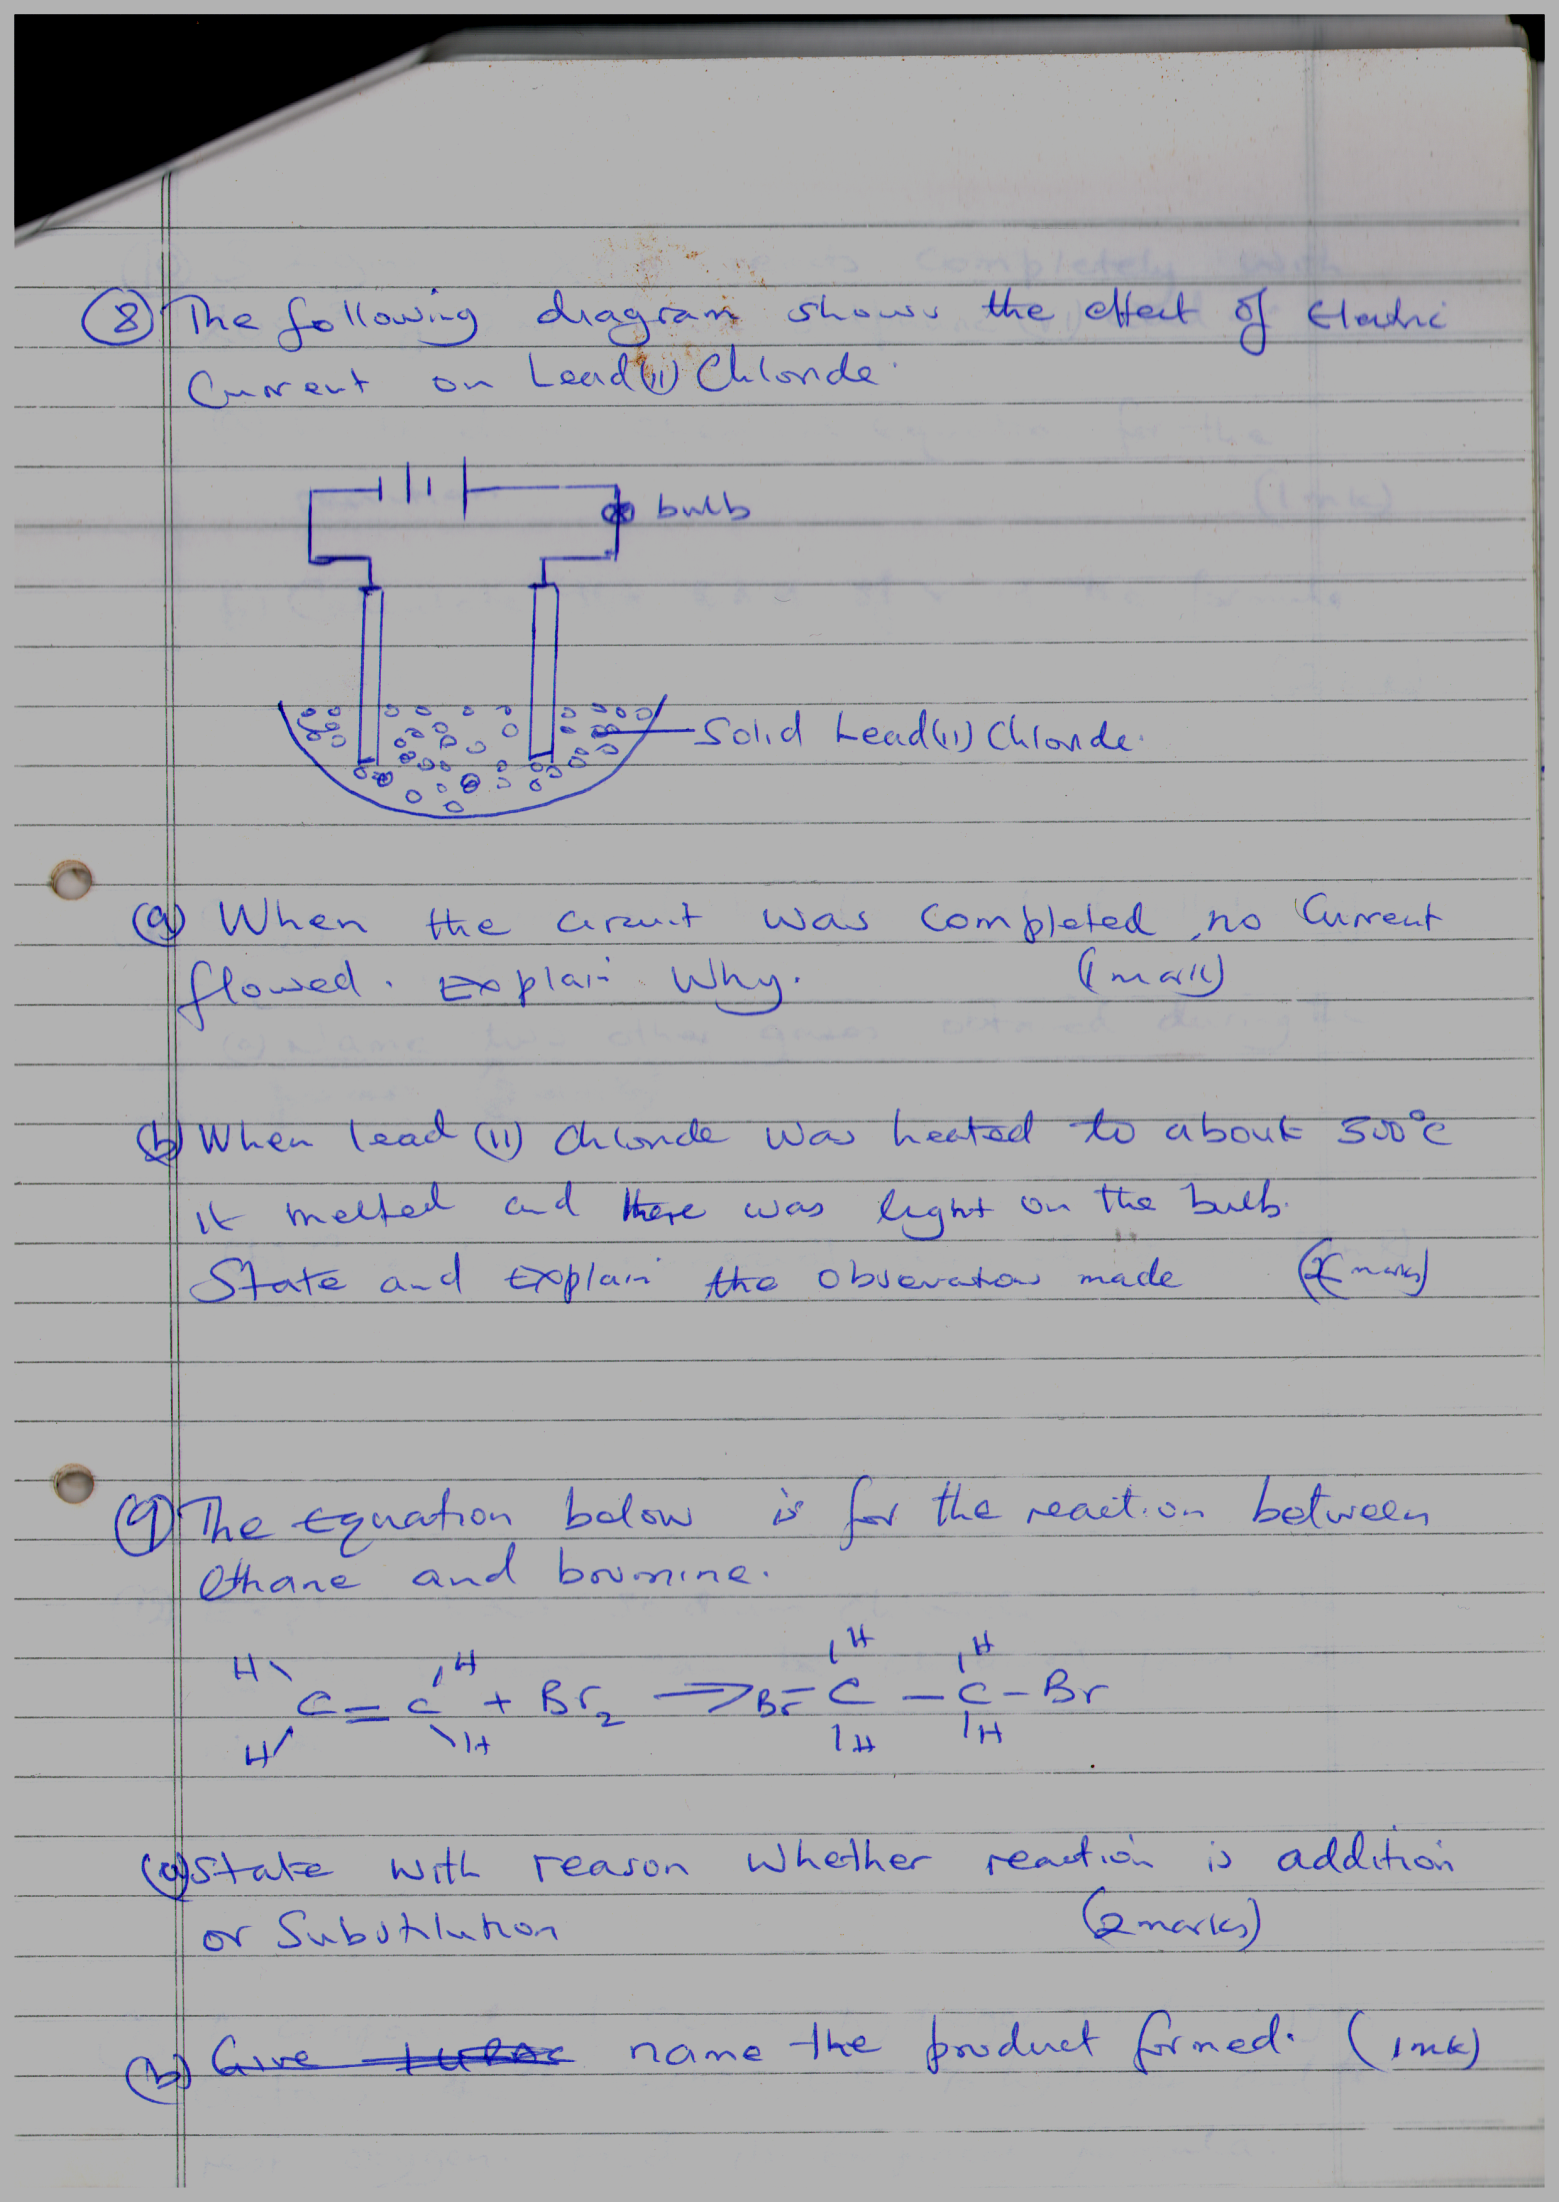 (8) The following diagram shows the effect of Electric
Current on Lead(II) Chloride.
bulb
Solid Lead(II) Chloride.
(a) When the circuit was completed, no Current
flowed. Explain Why. (1 mark)
(b) When lead (II) Chloride was heated to about 500°C
it melted and there was light on the bulb.
State and Explain the observation made (2 marks)
(9) The Equation below is for the reaction between
ethane and bromine.
H H H H
C = C + Br2 → Br - C - C - Br
H H H H
(a) State with reason whether reaction is addition
or Substitution (2 marks)
(b) Give IUPAC name the product formed. (1mk)